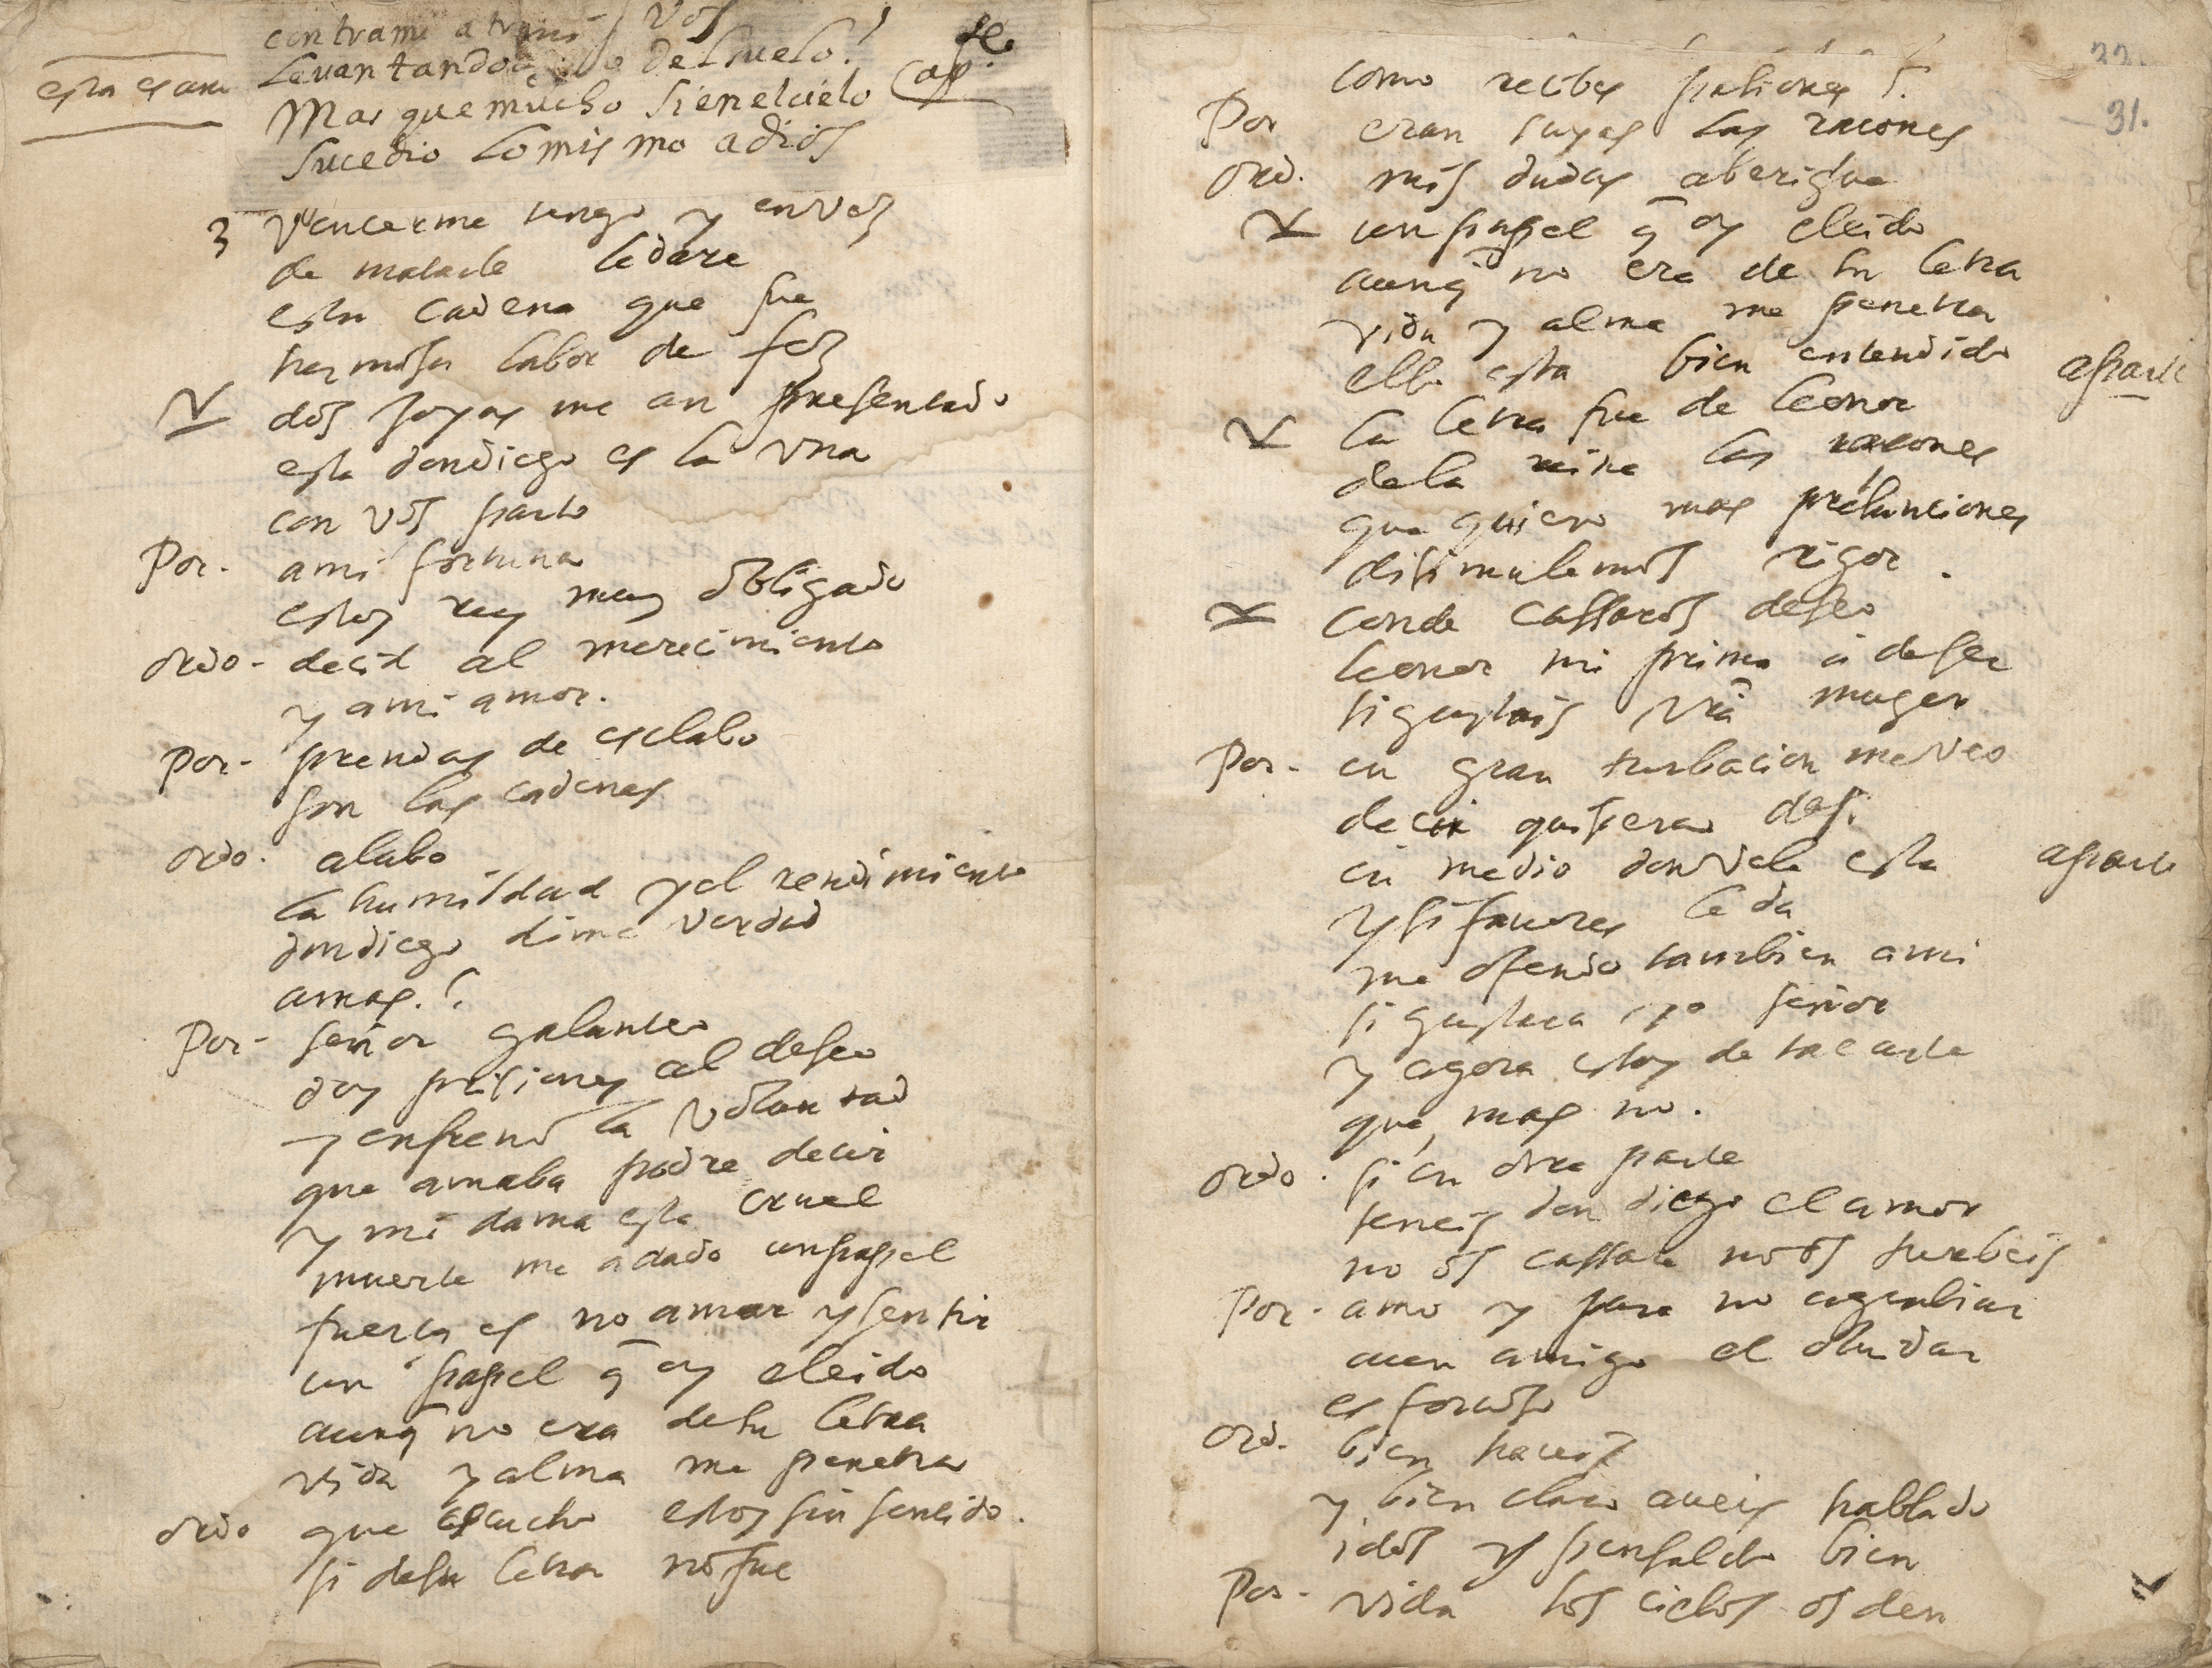 contra mi atreui vos
esta es ani Leuantando del suelo!
Mas que mucho si en el cielo ap.
sucedio lo mismo a dios
3 Vencerme tengo y en vez
de matarle le dare
esta cadena que fue
hermosa labor de fez
dos joyas me an presentado
esta don diego es la vna
con vos parto
Por. a mi fortuna
estoy rey muy obligado
ordo. decid al merecimiento
y a mi amor.
Por. prendas de esclabo
son las cadenas
ordo. alabo
la humildad y el rendimiento
don diego dime verdad
amas.?
Por. señor galanteo
doy prisiones al deseo
y enfreno la voluntad
que amaba podre decir
y mi dama esta cruel
muerte me a dado un papel
fuerça es no amar y sentir
un papel q̄ oy e leido
aunq̄ no era de su letra
vida y alma me penetra
ordo que escucho estoy sin sentido.
si de su letra no fue
31.
como recibes pasiones?
Por eran suyas las raçones
ord. mis dudas aberigue
un papel q̄ oy e leido
aunq̄ no era de su letra
vida y alma me penetra
ello esta bien entendido aparte
la letra fue de leonor
de la reina las raçones
que quiero mas presunciones
disimulemos rigor.
conde cassaros deseo
leonor mi prima a de ser
si gustais vrā muger
Por. en gran turbacion me veo
decir quisiera de si
en medio don vela esta aparte
y si fauores le da
me ofendo tambien a mi
si gustara yo señor
y agora estoy de tal arte
que, mas no.
ordo. si en otra parte
teneis don diego el amor
no os cassare no os turbeis
Por. amo y para no agrabiar
a un amigo el oluidar
es forçoso
ord. bien haceis
y bien claro aueis hablado
idos y pensaldo bien
Por. vida los cielos os den